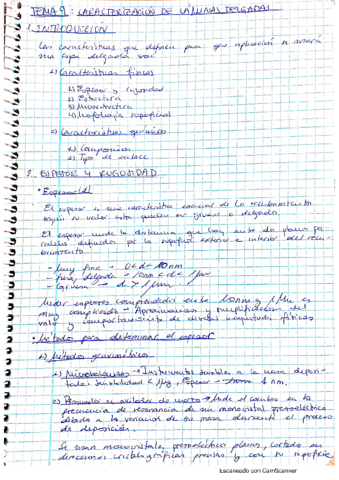 TEMA 9: CARACTERIZACIÓN DE LÁMINAS DELGADAS
1. INTRODUCCIÓN
Las características que definen para que aplicación se usará
una capa delgada son:
1) Características físicas
1) Espesor y rugosidad
2) Estructura
3) Microestructura
4) Morfología superficial
2) Características químicas
1) Composición
2) Tipo de enlace
2. ESPESOR Y RUGOSIDAD
• Espesor (d)
El espesor es una característica esencial de los recubrimientos
según su valor estos pueden ser gruesos o delgados.
El espesor mide la distancia que hay entre dos planos pa
ralelos definidos por la superficie exterior e interior del recu
brimiento.
- Muy fina - 0<d<10nm
- Fina, delgada - 10nm<d<1µm
- Gruesa - d>1µm
Medir espesores comprendidos entre 10nm y 1µm es
muy complicado - Aproximaciones y simplificación del
valor y comportamiento de diversas magnitudes físicas
• Métodos para determinar el espesor
1) Métodos gravimétricos
1) Microbalanzas - Instrumentos sensibles a la masa deposi-
tada: Sensibilidad < 1µg, Espesor 1nm.
2) oscilador de cuarzo - Mide el cambio en la
frecuencia de resonancia de un monocristal piezoeléctrico
debido a la variación de su masa durante el proceso
de deposición.
Se usan monocristales piezoeléctricos planos, cortados en
direcciones cristalográficas precisas y con su superficie
Escaneado con CamScanner